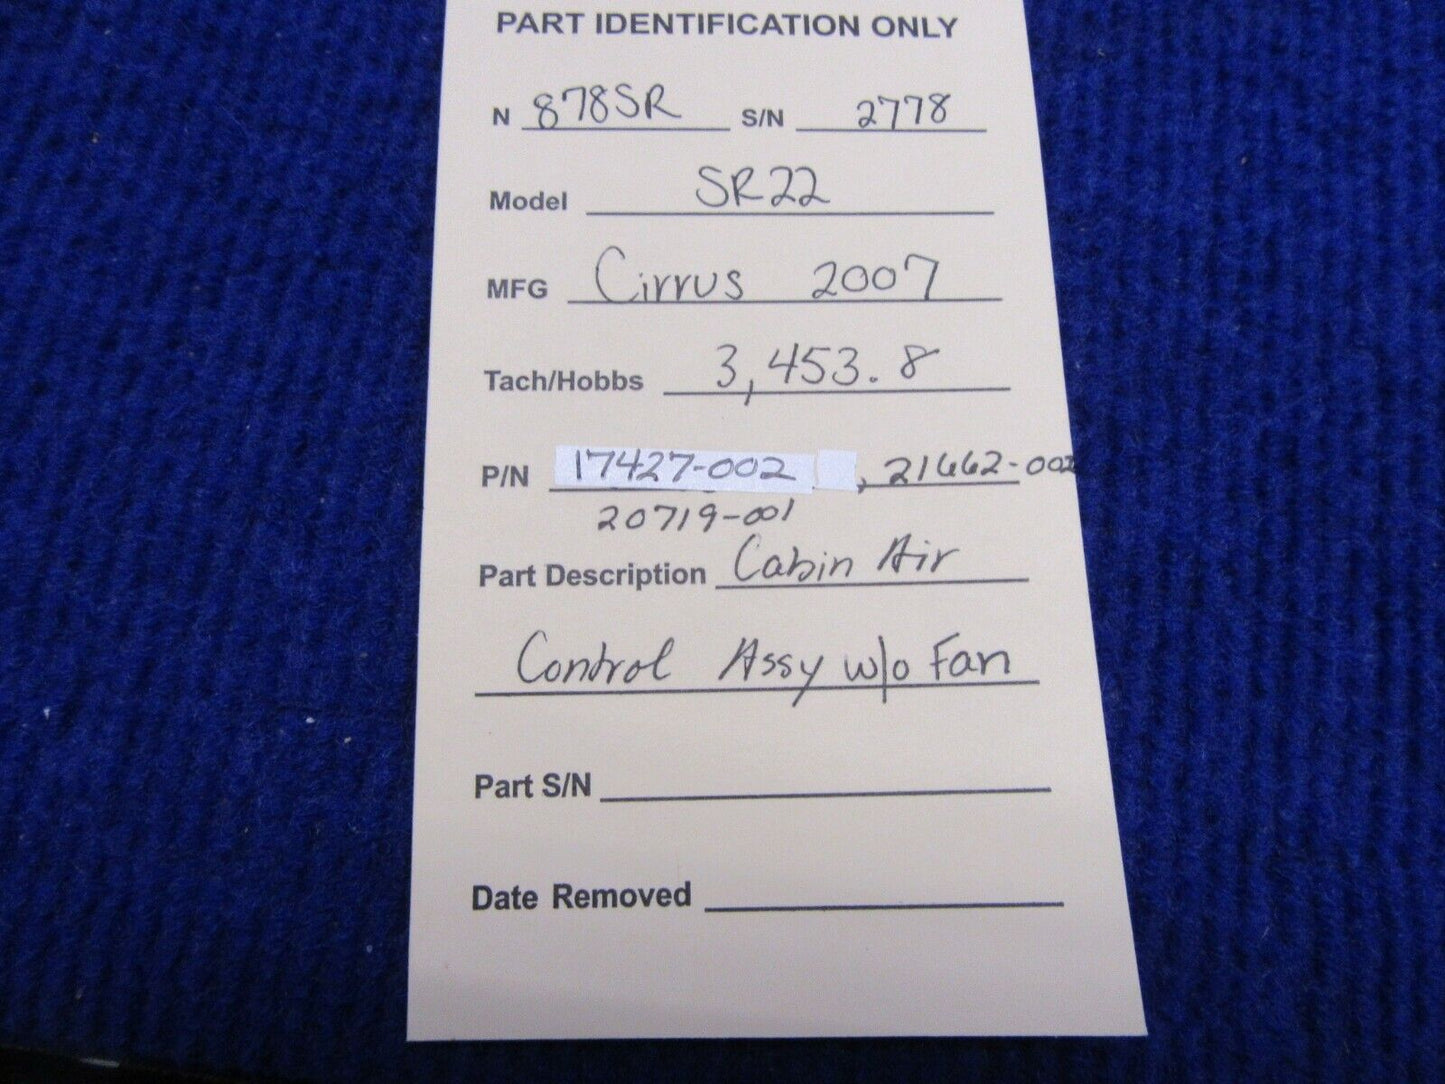 PART IDENTIFICATION ONLY
N 878SR S/N 2778
Model SR22
MFG Cirrus 2007
Tach/Hobbs 3,453.8
P/N 17427-002 , 21662-002
20719-001
Part Description Cabin Air
Control Assy w/o Fan
Part S/N
Date Removed